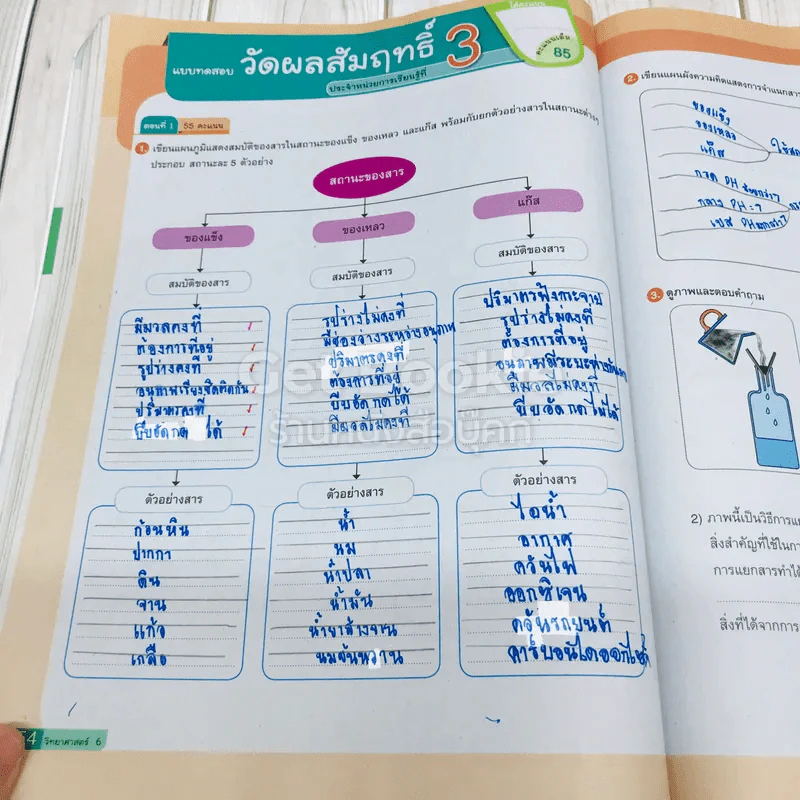 แบบทดสอบ วัดผลสัมฤทธิ์ 3
ประจำหน่วยการเรียนรู้ที่
ได้คะแนน
คะแนนเต็ม
85
ตอนที่ 1 55 คะแนน
1. เขียนแผนภูมิแสดงสมบัติของสารในสถานะของแข็ง ของเหลว และแก๊ส พร้อมกับยกตัวอย่างสารในสถานะต่างๆ
ประกอบ สถานะละ 5 ตัวอย่าง
สถานะของสาร
ของแข็ง
สมบัติของสาร
มีมวลคงที่
ต้องการที่อยู่
รูปร่างคงที่
อนุภาคเรียงชิดติดกัน
ปริมาตรคงที่
บีบอัด ได้
ตัวอย่างสาร
ก้อนหิน
ปากกา
ดิน
จาน
แก้ว
เกลือ
ของเหลว
สมบัติของสาร
รูปร่างไม่คงที่
มีช่องว่างระหว่างอนุภาค
ปริมาตรคงที่
ต้องการที่อยู่
บีบอัด ได้
มีมวลไม่คงที่
ตัวอย่างสาร
น้ำ
นม
น้ำปลา
น้ำมัน
น้ำยาล้างจาน
นมข้นหวาน
แก๊ส
สมบัติของสาร
ปริมาตรฟุ้งกระจาย
รูปร่างไม่คงที่
ต้องการที่อยู่
มีมวลไม่คงที่
บีบอัด
ตัวอย่างสาร
ไอน้ำ
อากาศ
ควันไฟ
ออกซิเจน
ควันรถยนต์
คาร์บอนไดออกไซด์
54 วิทยาศาสตร์ 6
2. เขียนแผนผังความคิดแสดงการจำแนกสาร
ของแข็ง
ของเหลว
แก๊ส
กรด PH
กลาง PH = 7
เบส PH
3. ดูภาพและตอบคำถาม
2) ภาพนี้เป็นวิธีการแ
สิ่งสำคัญที่ใช้ในกา
การแยกสารทำได้
สิ่งที่ได้จากการ
Get Book
ร้านหนังสือบุ๊คกี้